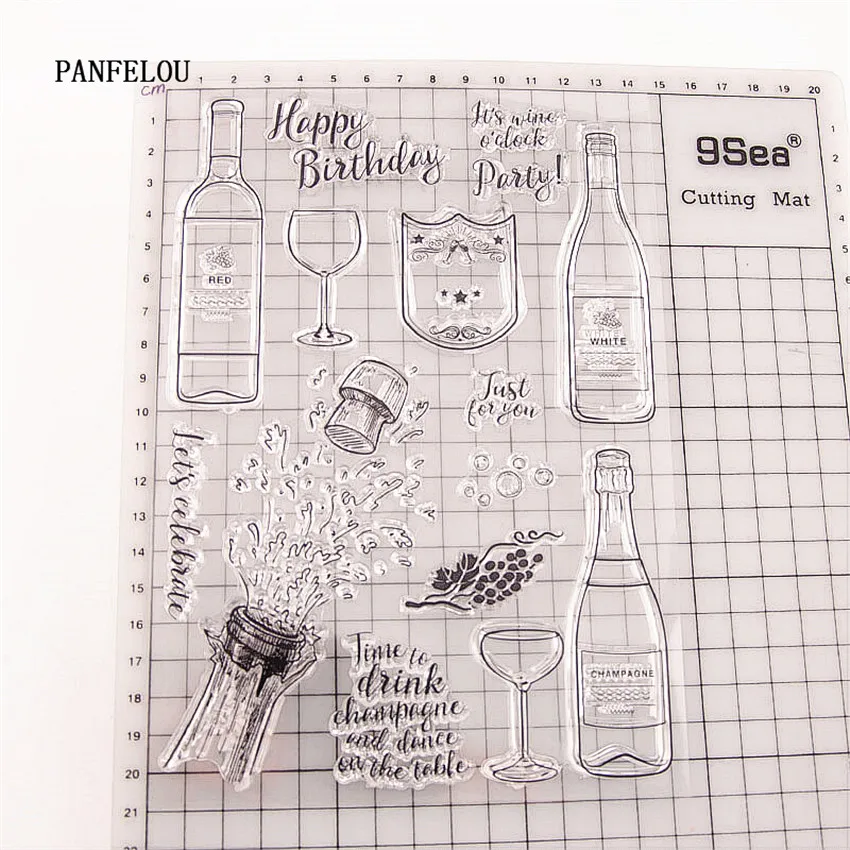 PANFELOU
cm
1 2 3 4 5 6 7 8 9 10 11 12 13 14 15 16 17 18 19 20
1
2
3
4
5
6
7
8
9
10
11
12
13
14
15
16
17
18
19
20
21
1
2
3
4
5
6
9Sea®
Cutting Mat
Happy
Birthday
It's wine
o'clock
Party!
RED
WHITE
WHITE
Just
for you
Let's celebrate
CHAMPAGNE
Time to
drink
champagne
and dance
on the table